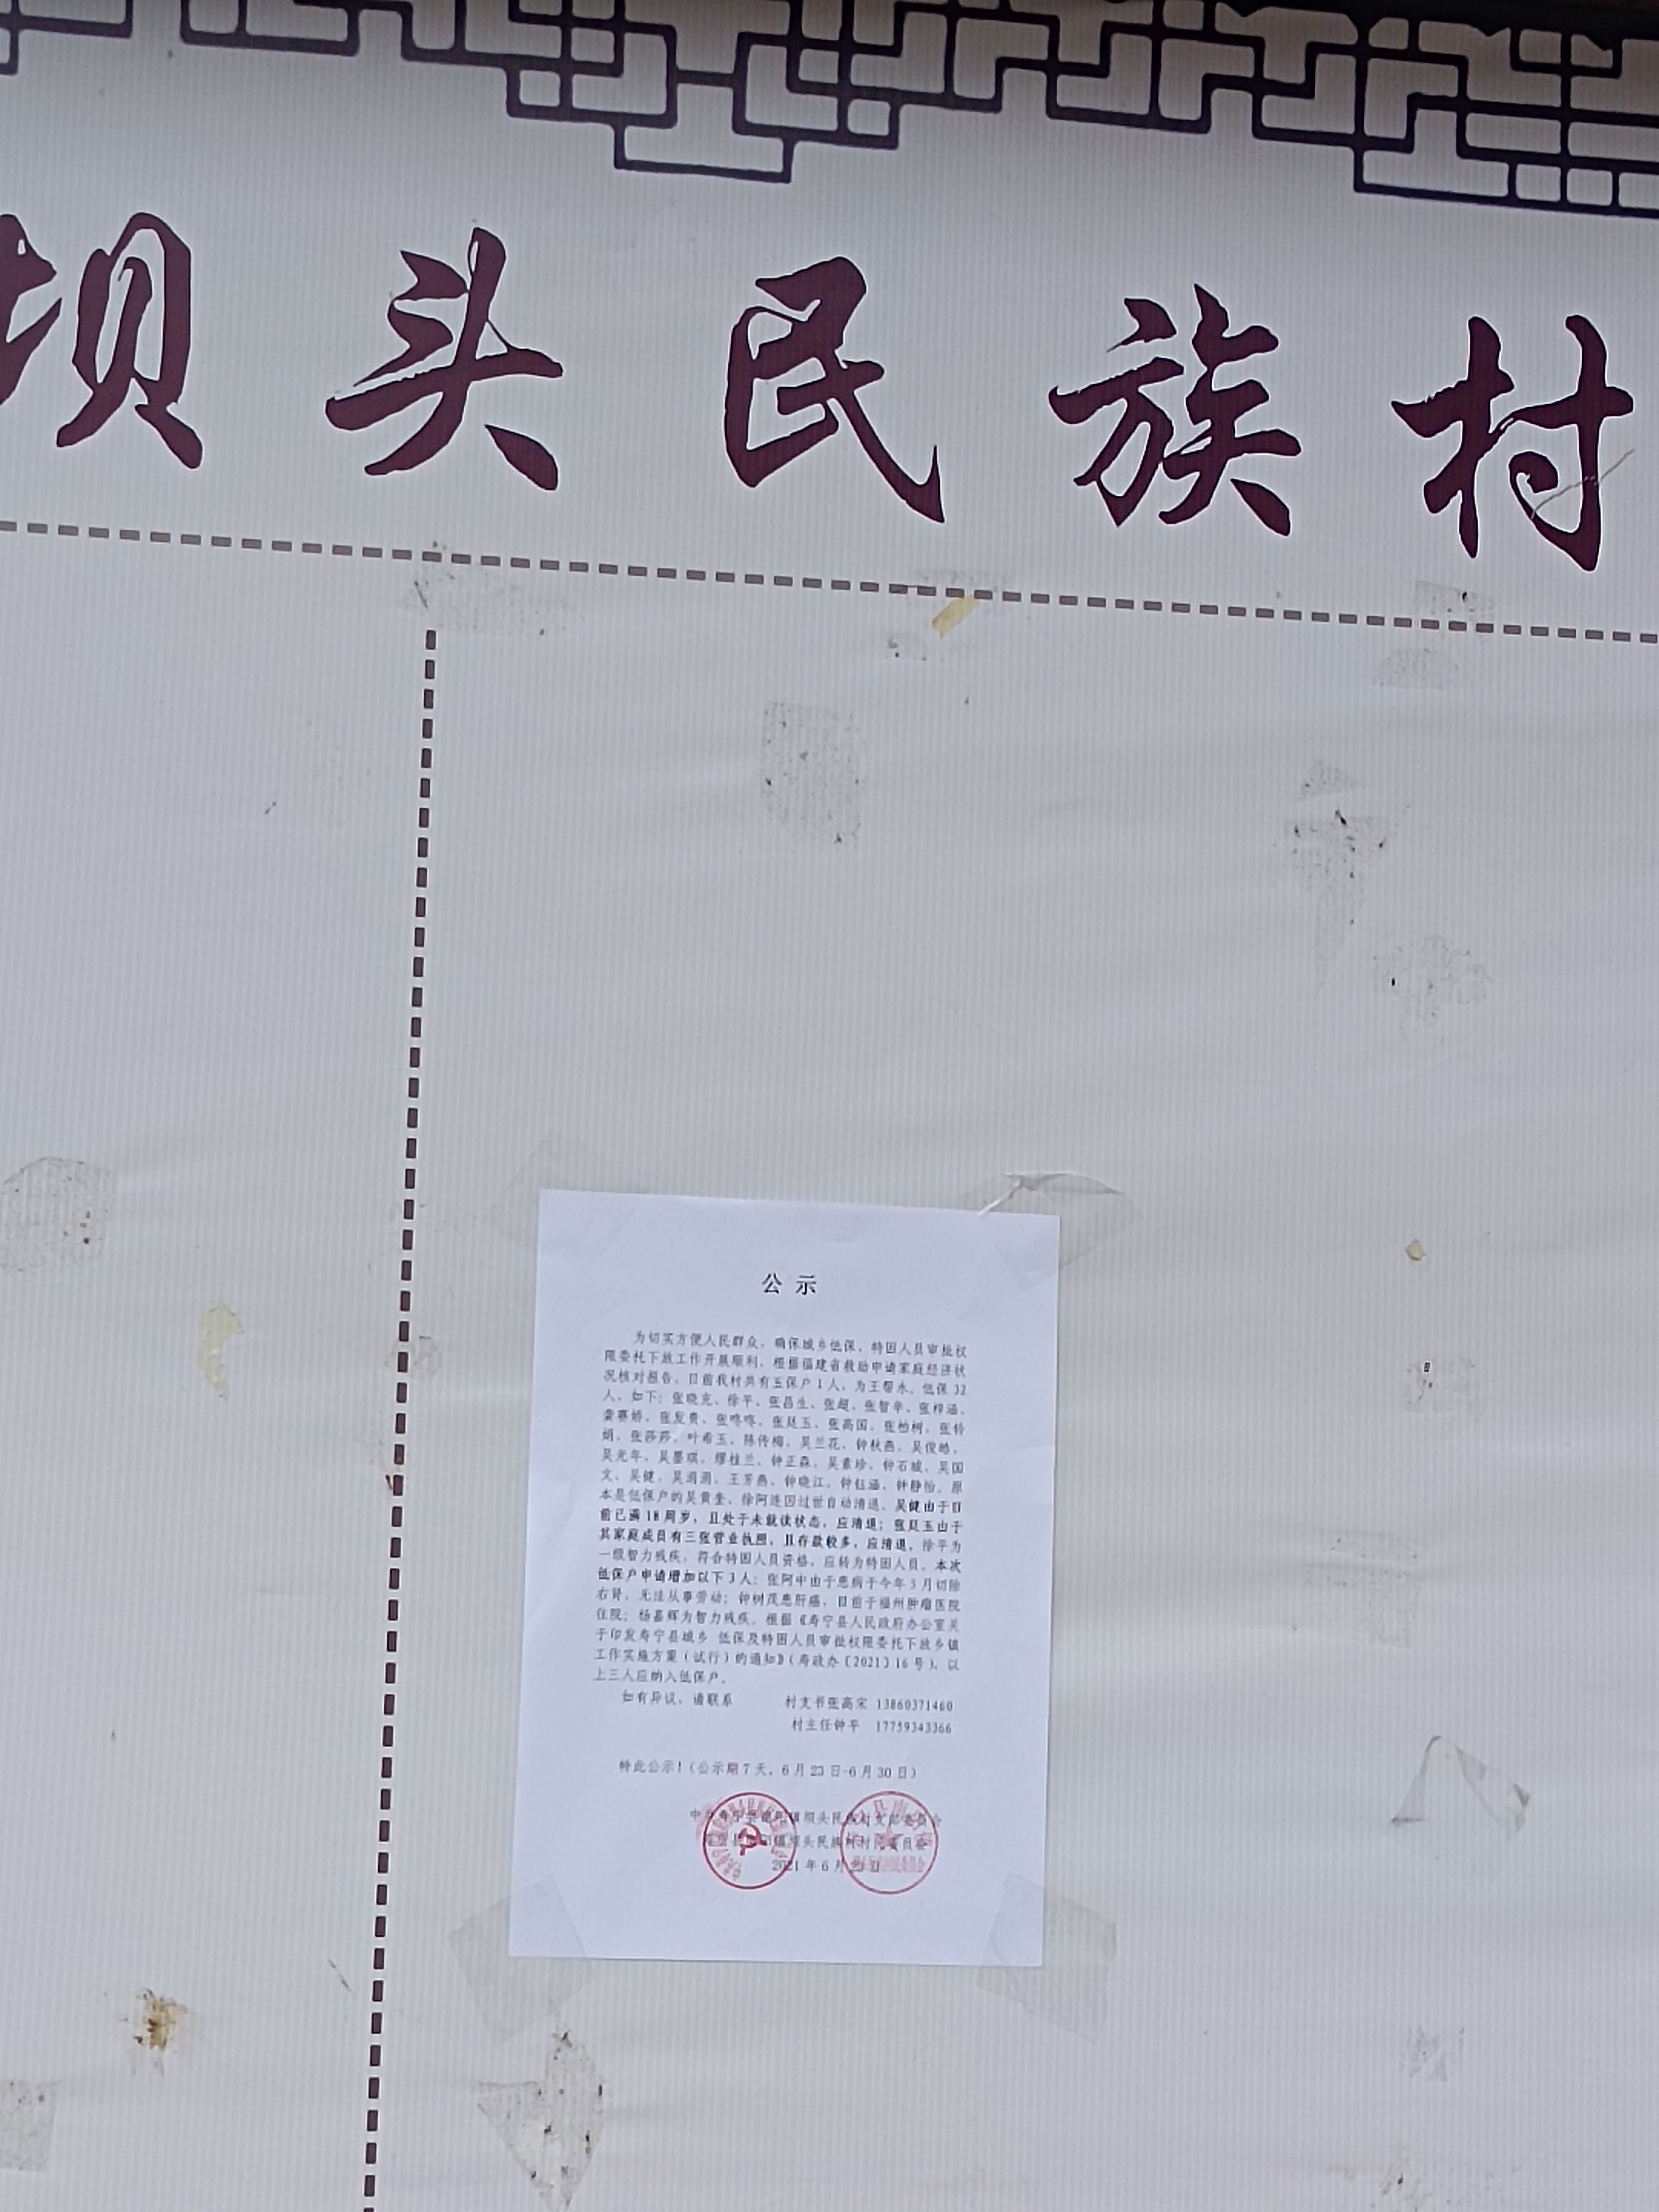 坝头民族村
公示
为切实方便人民群众，确保城乡低保、特困人员审批权
限委托下放工作开展顺利，根据福建省救助申请家庭经济状
况核对报告，目前我村共有五保户1人，为王帮水，低保32
人，如下：张晓克、徐平、张昌生、张超、张智辛、张梓涵、
龚赛娇、张发贵、张咚咚、张廷玉、张高国、张怡树、张铃
娟、张莎莎、叶希玉、陈传梅、吴兰花、钟秋燕、吴俊皓、
吴光年、吴墨琪、缪桂兰、钟正森、吴素珍、钟石城、吴国
文、吴健、吴涓涓、王芳燕、钟晓江、钟钰涵、钟静怡。原
本是低保户的吴黄奎、徐阿连因过世自动清退。吴健由于目
前已满18周岁，且处于未就读状态，应清退；张廷玉由于
其家庭成员有三张营业执照，且存款较多，应清退。徐平为
一级智力残疾，符合特困人员资格，应转为特困人员。本次
低保户申请增加以下3人：张阿中由于患病于今年5月切除
右肾，无法从事劳动；钟树茂患肝癌，目前于福州肿瘤医院
住院；杨嘉辉为智力残疾。根据《寿宁县人民政府办公室关
于印发寿宁县城乡 低保及特困人员审批权限委托下放乡镇
工作实施方案（试行）的通知》（寿政办〔2021〕16号），以
上三人应纳入低保户。
如有异议，请联系 村支书张高宋 13860371460
村主任钟平 17759343366
特此公示！（公示期7天，6月23日-6月30日）
中共寿宁县 镇坝头民族村支部委员会
寿宁县 镇坝头民族村村民委员会
2021年6月23日